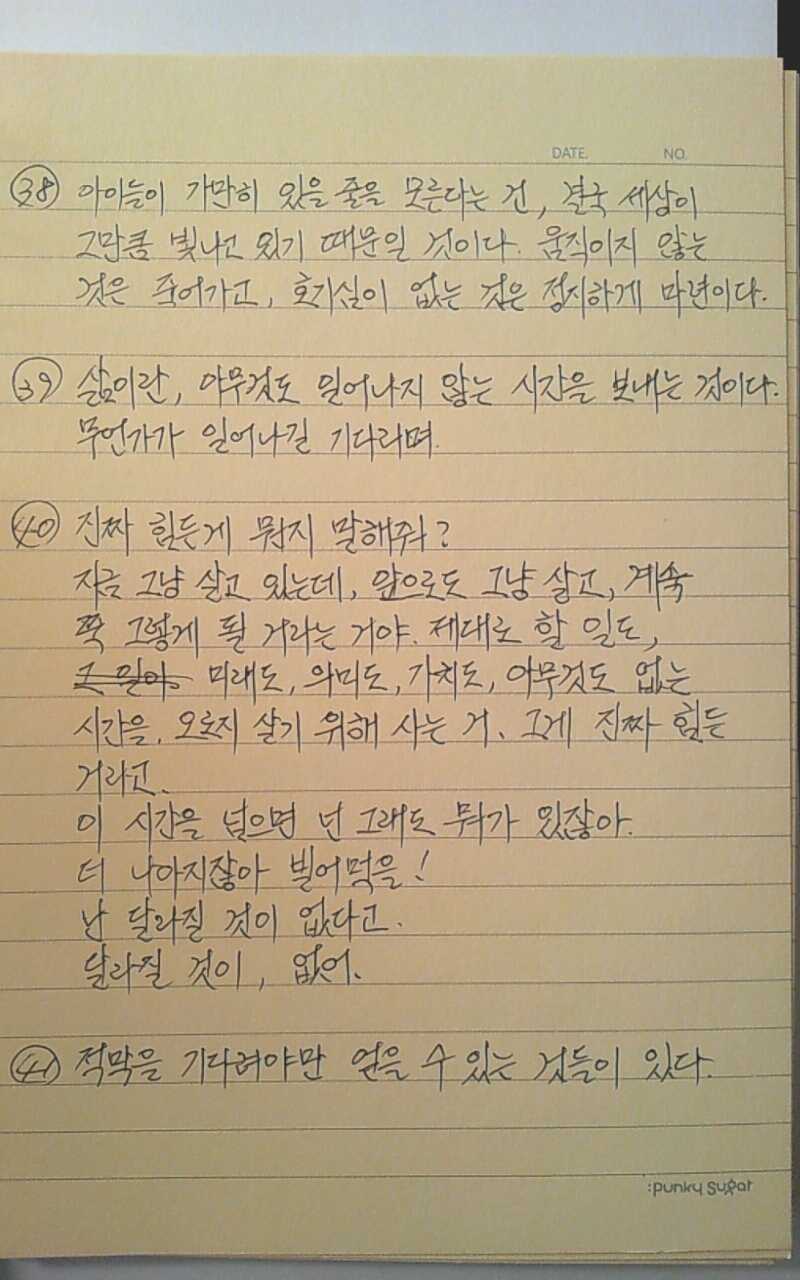 DATE. NO.
38 아이들이 가만히 있을 줄을 모른다는 건, 결국 세상이
그만큼 빛나고 있기 때문일 것이다. 움직이지 않는
것은 죽어가고, 호기심이 없는 것은 정지하게 마련이다.
39 삶이란, 아무것도 일어나지 않는 시간을 보내는 것이다.
무언가가 일어나길 기다리며.
40 진짜 힘든게 뭔지 말해줘?
지금 그냥 살고 있는데, 앞으로도 그냥 살고, 계속
쭉 그렇게 될 거라는 거야. 제대로 할 일도,
미래도, 의미도, 가치도, 아무것도 없는
시간을, 오로지 살기 위해 사는 거. 그게 진짜 힘든
거라고.
이 시간을 넘으면 넌 그래도 뭐가 있잖아.
더 나아지잖아 빌어먹을!
난 달라질 것이 없다고.
달라질 것이, 없어.
41 적막을 기다려야만 얻을 수 있는 것들이 있다.
:punky sugar